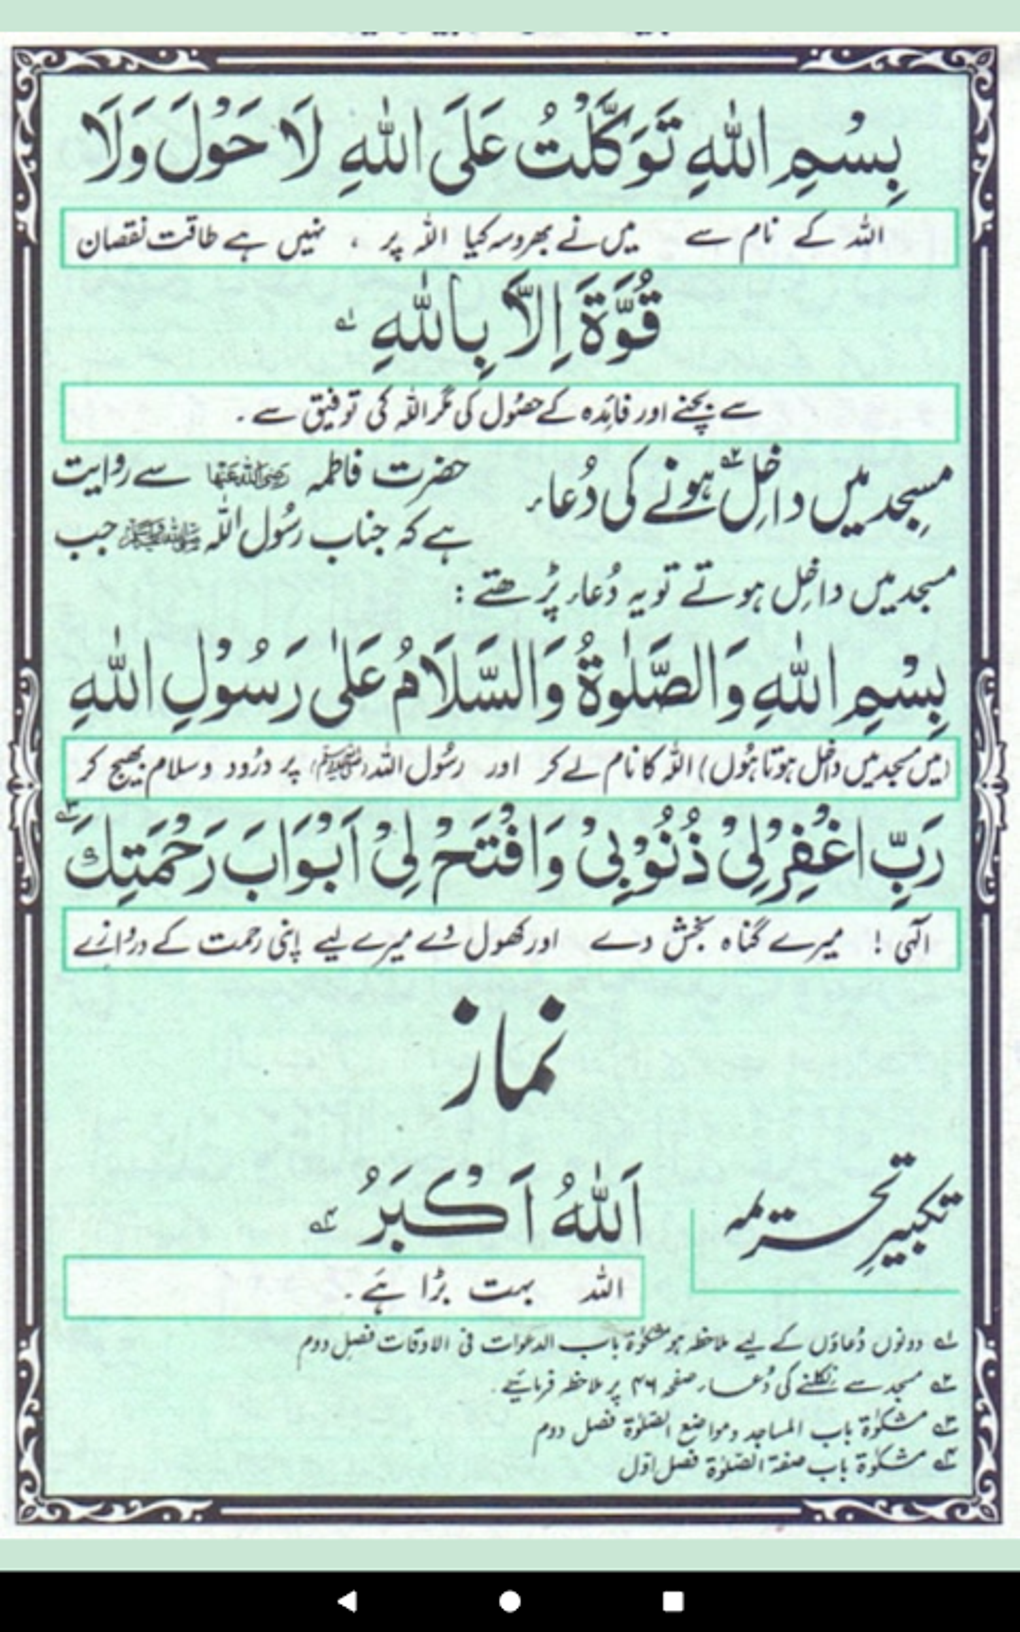 بِسْمِ اللهِ تَوَكَّلْتُ عَلَى اللهِ لَا حَوْلَ وَلَا
اللہ کے نام سے میں نے بھروسہ کیا اللہ پر ، نہیں ہے طاقت نقصان
قُوَّةَ اِلَّا بِاللهِ ؎۱
سے بچنے اور فائدہ کے حصُول کی مگر اللہ کی توفیق سے ۔
مسجد میں داخِل ہونے کی دُعاء ؎۲ حضرت فاطمہ رضی اللہ عنہا سے روایت
ہے کہ جناب رسُول اللہ ﷺ جب
مسجد میں داخِل ہوتے تو یہ دُعاء پڑھتے :
بِسْمِ اللهِ وَالصَّلٰوةُ وَالسَّلَامُ عَلٰى رَسُوْلِ اللهِ
(میں مسجد میں داخل ہوتا ہوُں) اللہ کا نام لے کر اور رسُول اللہ (ﷺ) پر درُود و سلام بھیج کر
رَبِّ اغْفِرْلِىْ ذُنُوْبِىْ وَافْتَحْ لِىْ اَبْوَابَ رَحْمَتِكَ ؎۳
الٰہی ! میرے گناہ بخش دے اور کھول دے میرے لیے اپنی رحمت کے دروازے
نماز
تکبیرِ تحریمہ اَللهُ اَكْبَرُ ؎۴
اللہ بہت بڑا ہَے ۔
؎۱ دونوں دُعاؤں کے لیے ملاحظہ ہو مشکوٰۃ باب الدعوات فی الاوقات فصل دوم
؎۲ مسجد سے نکلنے کی دُعاء صفحہ ۴۶ پر ملاحظہ فرمائیے ۔
؎۳ مشکوٰۃ باب المساجد ومواضع الصّلوٰۃ فصل دوم
؎۴ مشکوٰۃ باب صفۃ الصّلوٰۃ فصل اوّل